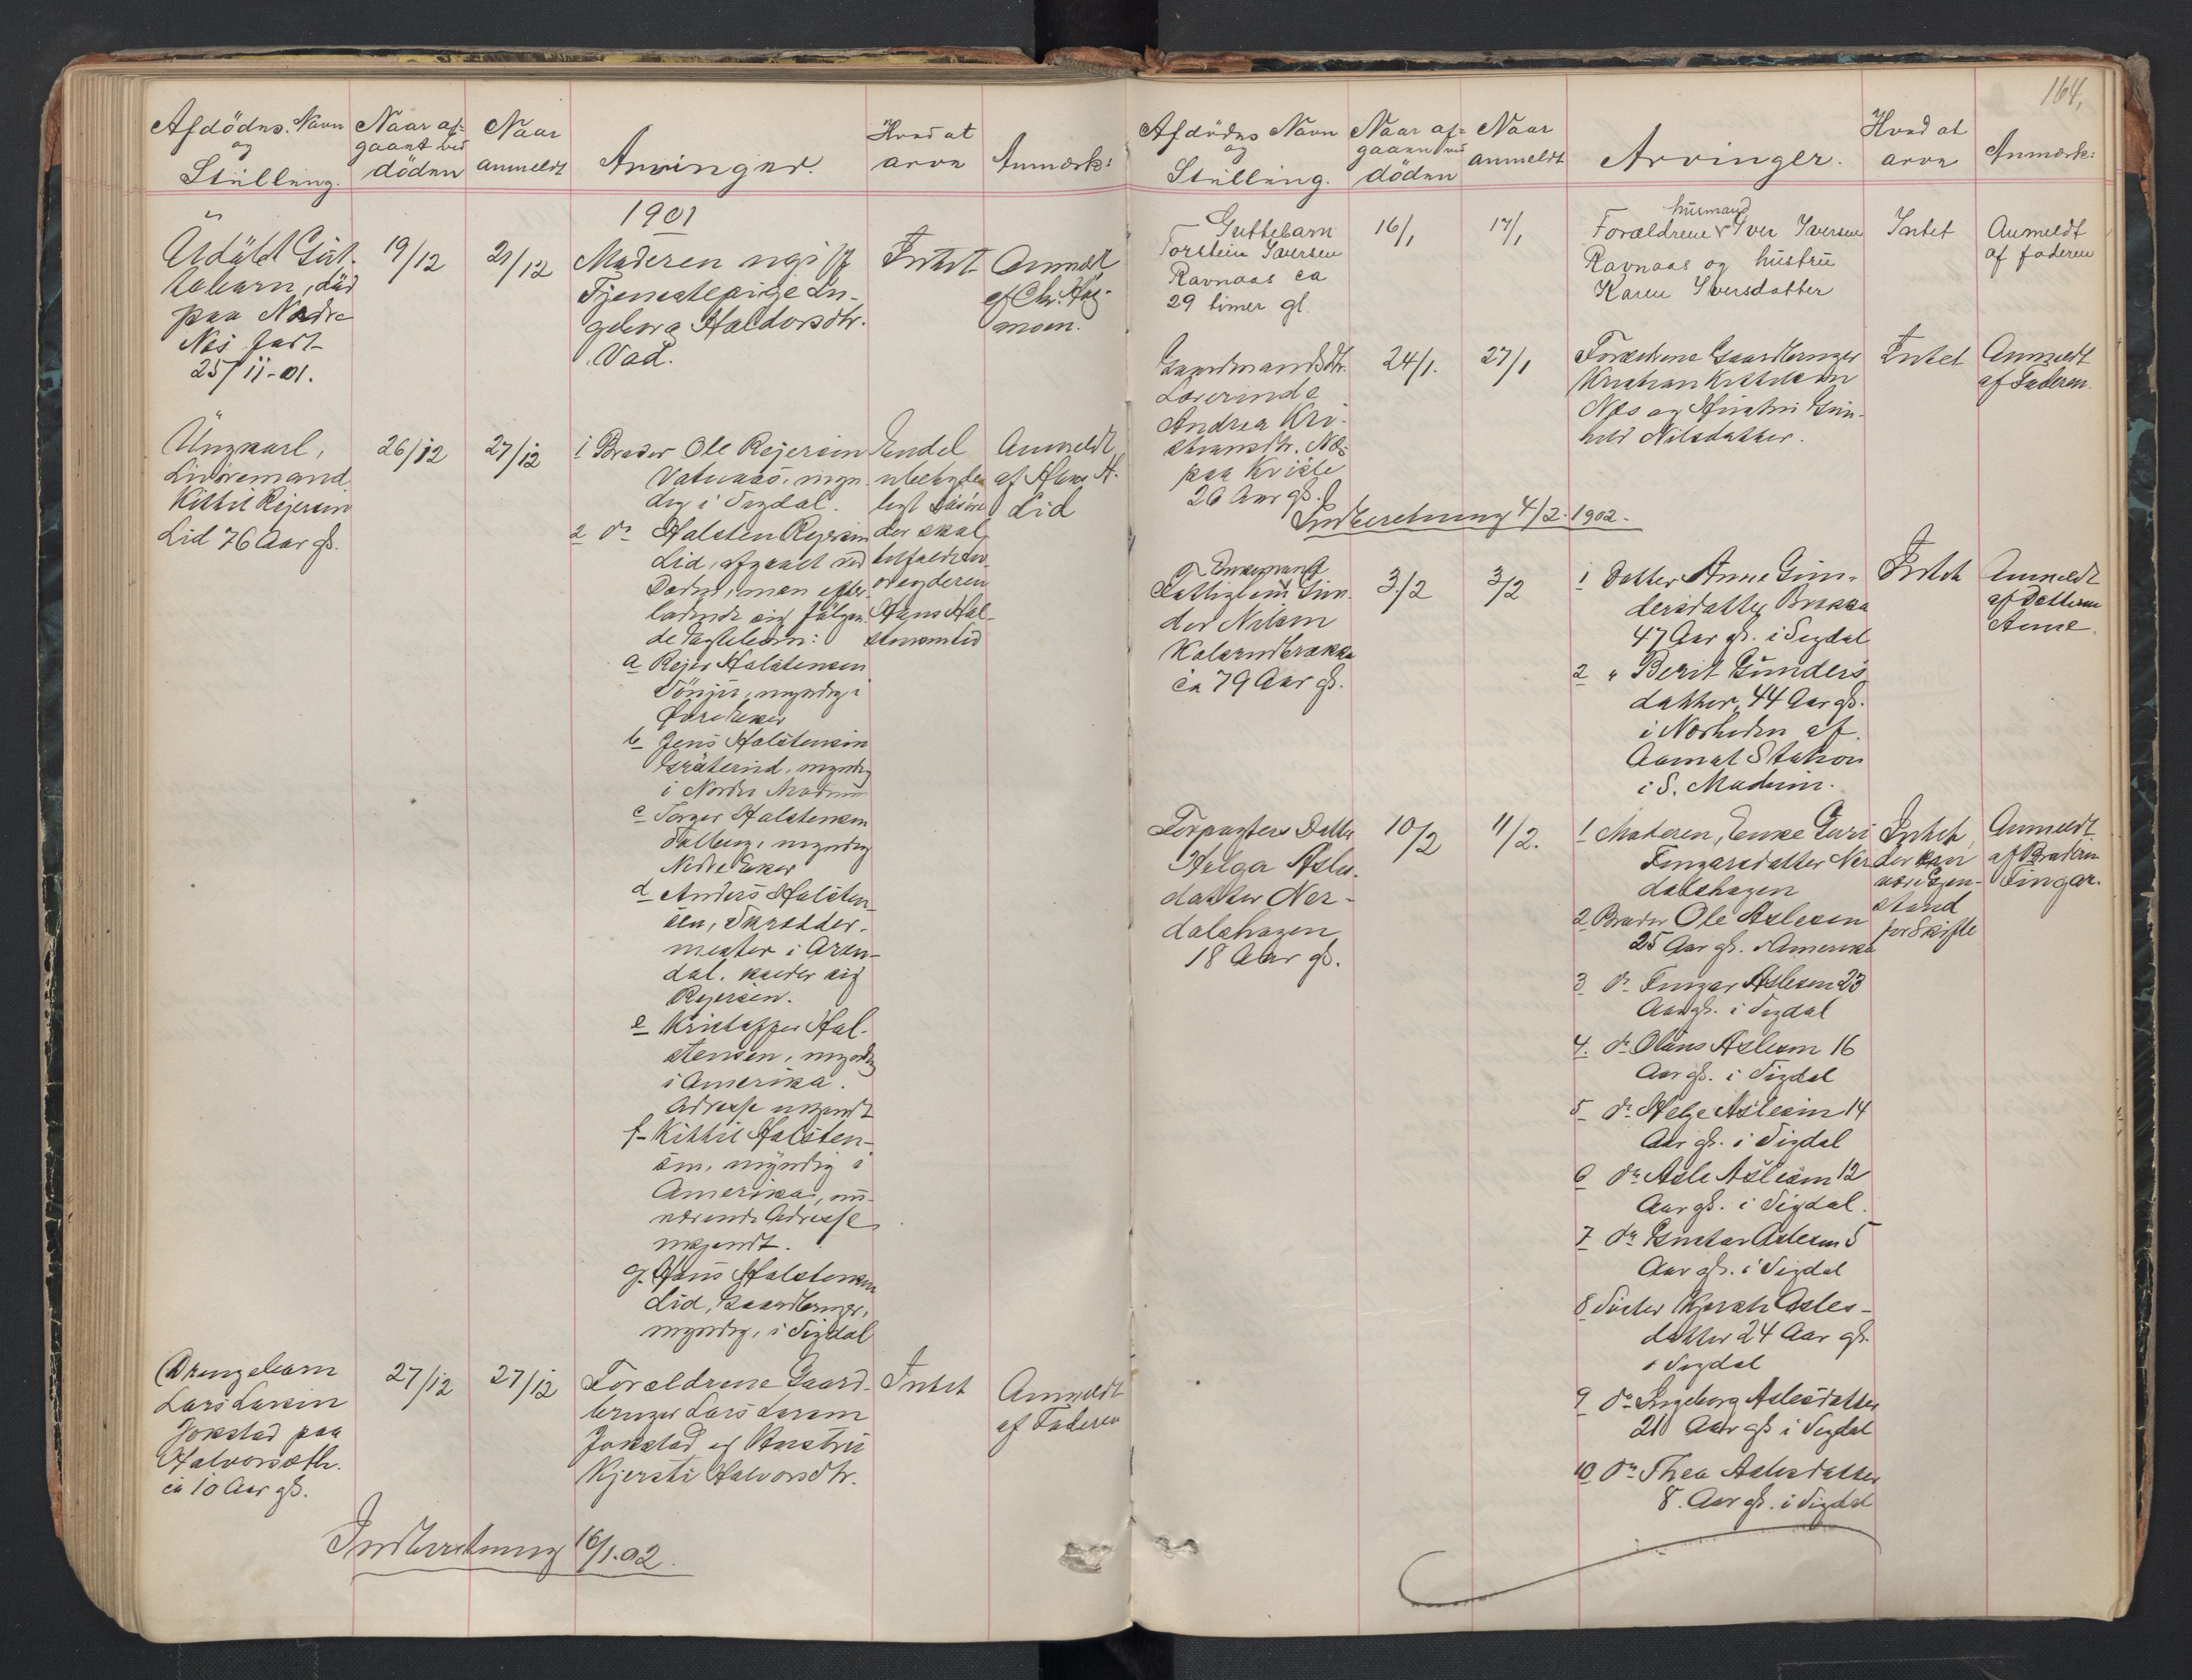 Afdødes Navn
og
Stilling.
Naar af-
gaaet ved
døden
Naar
anmeldt
Arvinger.
Hvad at
arve
Anmærk:
1901
Udøbt Gut-
tebarn, død
paa Nedre
Nes født
25/11-01.
19/12
21/12
Moderen ugift
Tjenestepige In-
geborg Haldorsdtr.
Vad.
Intet
Anmeldt
af Chr. Hag-
moen.
Ungkarl,
Livøremand
Kittil Rejersen
Lid 76 Aar gl.
26/12
27/12
1 Broder Ole Rejersen
Vatnaas, myn-
dig i Sigdal.
2 do Halsten Rejersen
Lid, afgaaet ved
Døden, men efter-
ladende sig følgen-
de Ægtebørn:
a Rejer Halstensen
myndig i
Øvre Eker
b Jens Halstensen
Gräterud, myndig
i Nordre Modum
c Torger Halstensen
Solberg, myndig
Nedre Eker
d Anders Halsten-
sen, Skrædder-
mester i Aren-
dal. kalder sig
Rejersen.
e Kristoffer Hal-
stensen, myndig
i Amerika.
Adresse ukjendt
f Kittil Halsten-
sen, myndig i
Amerika, nu-
værende Adresse
ukjendt.
g. Hans Halstensen
Lid, Gaardbruger,
myndig, i Sigdal
Endel
ubetyde-
ligt Løsøre
der skal
tilfalde
Hans Hal-
stensen Lid
Anmeldt
af Hans H.
Lid
Drengebarn
Lars Larsen
Jokstad paa
Halvorsæth.
ca 10 Aar gl.
27/12
27/12
Forældrene Gaard-
bruger Lars Larsen
Jokstad og Hustru
Kjersti Halvorsdtr.
Intet
Anmeldt
af Faderen
Indberetning 16/1.02.
164.
Afdødes Navn
og
Stilling.
Naar af-
gaaen ved
døden
Naar
anmeldt
Arvinger.
Hvad at
arve
Anmærk:
Guttebarn
Torstein Iversen
Ravnaas ca
29 timer gl.
16/1
17/1
husmand
Forældrene Iver Iversen
Ravnaas og hustru
Karen Iversdatter
Intet
Anmeldt
af faderen
Gaardmandsdtr.
Lærerinde
Andrea Kri-
stiansdtr. Næs
paa Kvisle
26 Aar gl.
24/1.
27/1
Forældrene Gaardbruger
Kristian Kristiansen
Næs og Hustru Gun-
hild Nilsdatter.
Intet
Anmeldt
af Faderen.
Indberetning 4/2.1902.
og Enkemand
Fattiglem Gun-
der Nilsen
Kolsrudbrakka
ca 79 Aar gl.
3/2
3/2
1 Datter Anne Gun-
dersdatter Brakka
47 Aar gl. i Sigdal
2 " Berit Gunders-
datter, 44 Aar gl.
i Nærheden af
Aamot Station
i S. Modum.
Intet
Anmeldt
af Datteren
Anne.
Forpagters Datter
Helga Asles-
datter Ner-
dalshagen
18 Aar gl.
10/2
11/2.
1 Moderen, Enke Guri
Fingarsdatter Ner-
dalshagen
2 Broder Ole Aslesen
25 Aar gl. i Amerika
3 do Fingar Aslesen 23
Aar gl. i Sigdal
4. do Olaus Aslesen 16
Aar gl. i Sigdal
5 do Helge Aslesen 14
Aar gl. i Sigdal
6 do Asle Aslesen 12
Aar gl. i Sigdal.
7 do Gustav Aslesen 5
Aar gl. i Sigdal
8 Søster Kjersti Asles-
datter 24 Aar gl.
i Sigdal
9 do Ingeborg Aslesdatter
21 Aar gl i Sigdal
10 do Thea Aslesdatter
8. Aar gl. i Sigdal
Intet,
der kan
være Gjen-
stand
for Skifte
Anmeldt
af Broderen
Fingar.